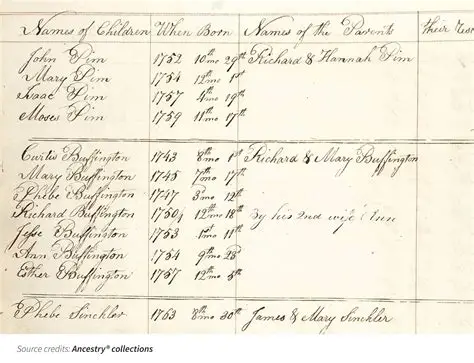 Names of Children When Born Names of the Parents their
John Pim 1752 10mo 29th Richard & Hannah Pim
Mary Pim 1754 12mo 1st
Isaac Pim 1757 4mo 19th
Moses Pim 1759 11mo 17th
Curtis Buffington 1743 8mo 1st Richard & Mary Buffington
Mary Buffington 1745 7mo 17th
Phebe Buffington 1747 3mo 12th
Richard Buffington 1750 12mo 18th By his 2nd wife Ann
Buffington 1753 1mo 11th
Ann Buffington 1754 9mo 23d
Esther Buffington 1757 12mo 5th
Phebe Sinckler 1763 8mo 30th James & Mary Sinckler
Source credits: Ancestry® collections